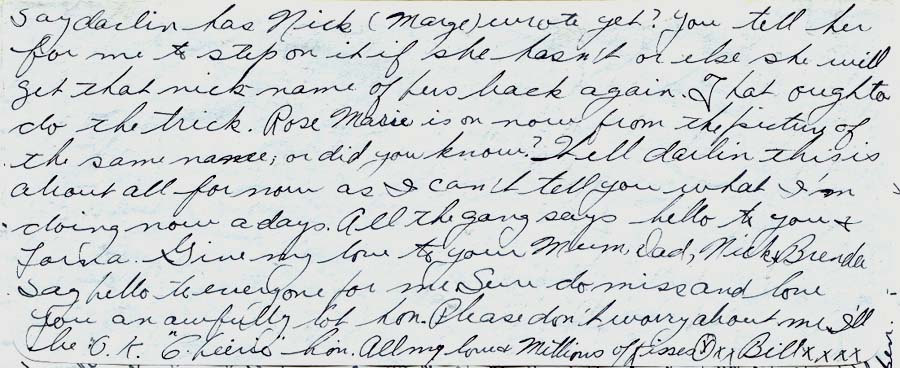 Say darlin has Nick (Marge) wrote yet? You tell her
for me to step on it if she hasn't or else she will
get that nick name of hers back again. That ought to
do the trick. Rose Marie is on now from the picture of
the same name, or did you know? Well darlin this is
about all for now as I can't tell you what I'm
doing now a days. All the gang says hello to you &
Give my love to your Mum, Dad, Nick & Brenda
Say hello to everyone for me. Sure do miss and love
you an awfully lot hon. Please don't worry about me I'll
be "O.K." "Cheerio" hon. All my love & Millions of kisses xx Bill xxxx